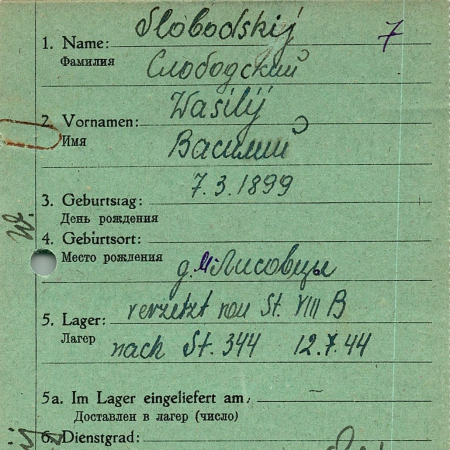 Slobodskij 7
1. Name:
Фамилия
Слободский
Wasilij
2. Vornamen:
Имя
Василий
7.3.1899
3. Geburtstag:
День рождения
4. Geburtsort:
Место рождения
д. Лисовцы
verzetzt von St. VIII B
5. Lager:
Лагер
nach St. 344 12.7.44
5a. Im Lager eingeliefert am, –
Доставлен в лагер (число)
6. Dienstgrad:
W.